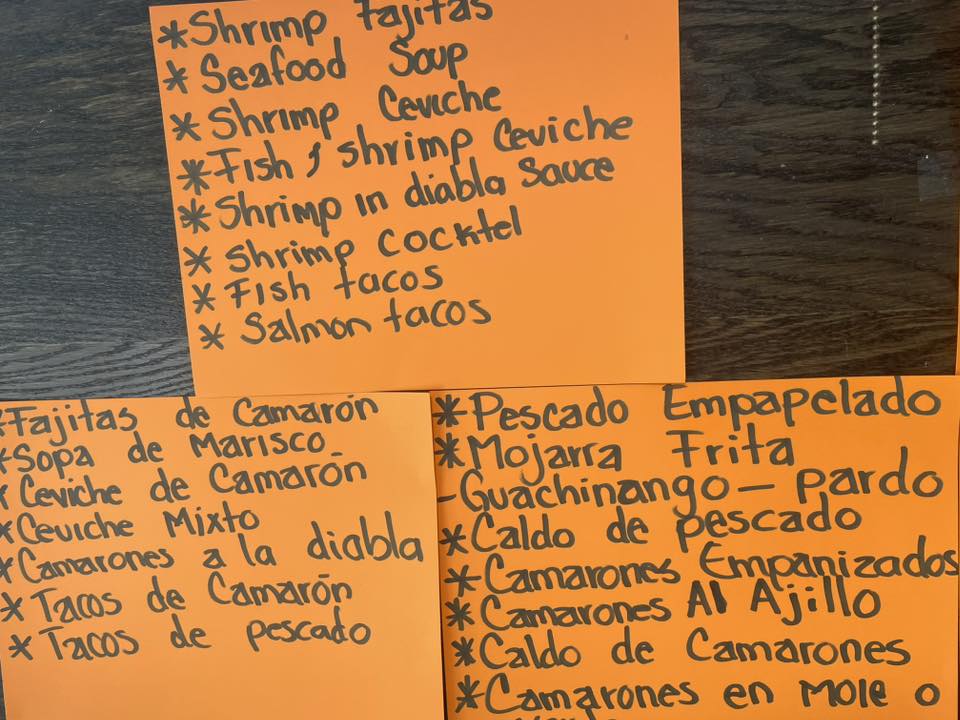 *Shrimp Fajitas
*Seafood Soup
*Shrimp Ceviche
*Fish, shrimp Ceviche
*Shrimp in diabla Sauce
*Shrimp cocktel
*Fish tacos
*Salmon tacos
*Fajitas de Camarón
*Sopa de Marisco
*Ceviche de Camarón
*Ceviche Mixto
*Camarones a la diabla
*Tacos de Camarón
*Tacos de pescado
*Pescado Empapelado
*Mojarra Frita
-Guachinango - pardo
*Caldo de pescado
*Camarones Empanizados
*Camarones Al Ajillo
*Caldo de Camarones
*Camarones en Mole o